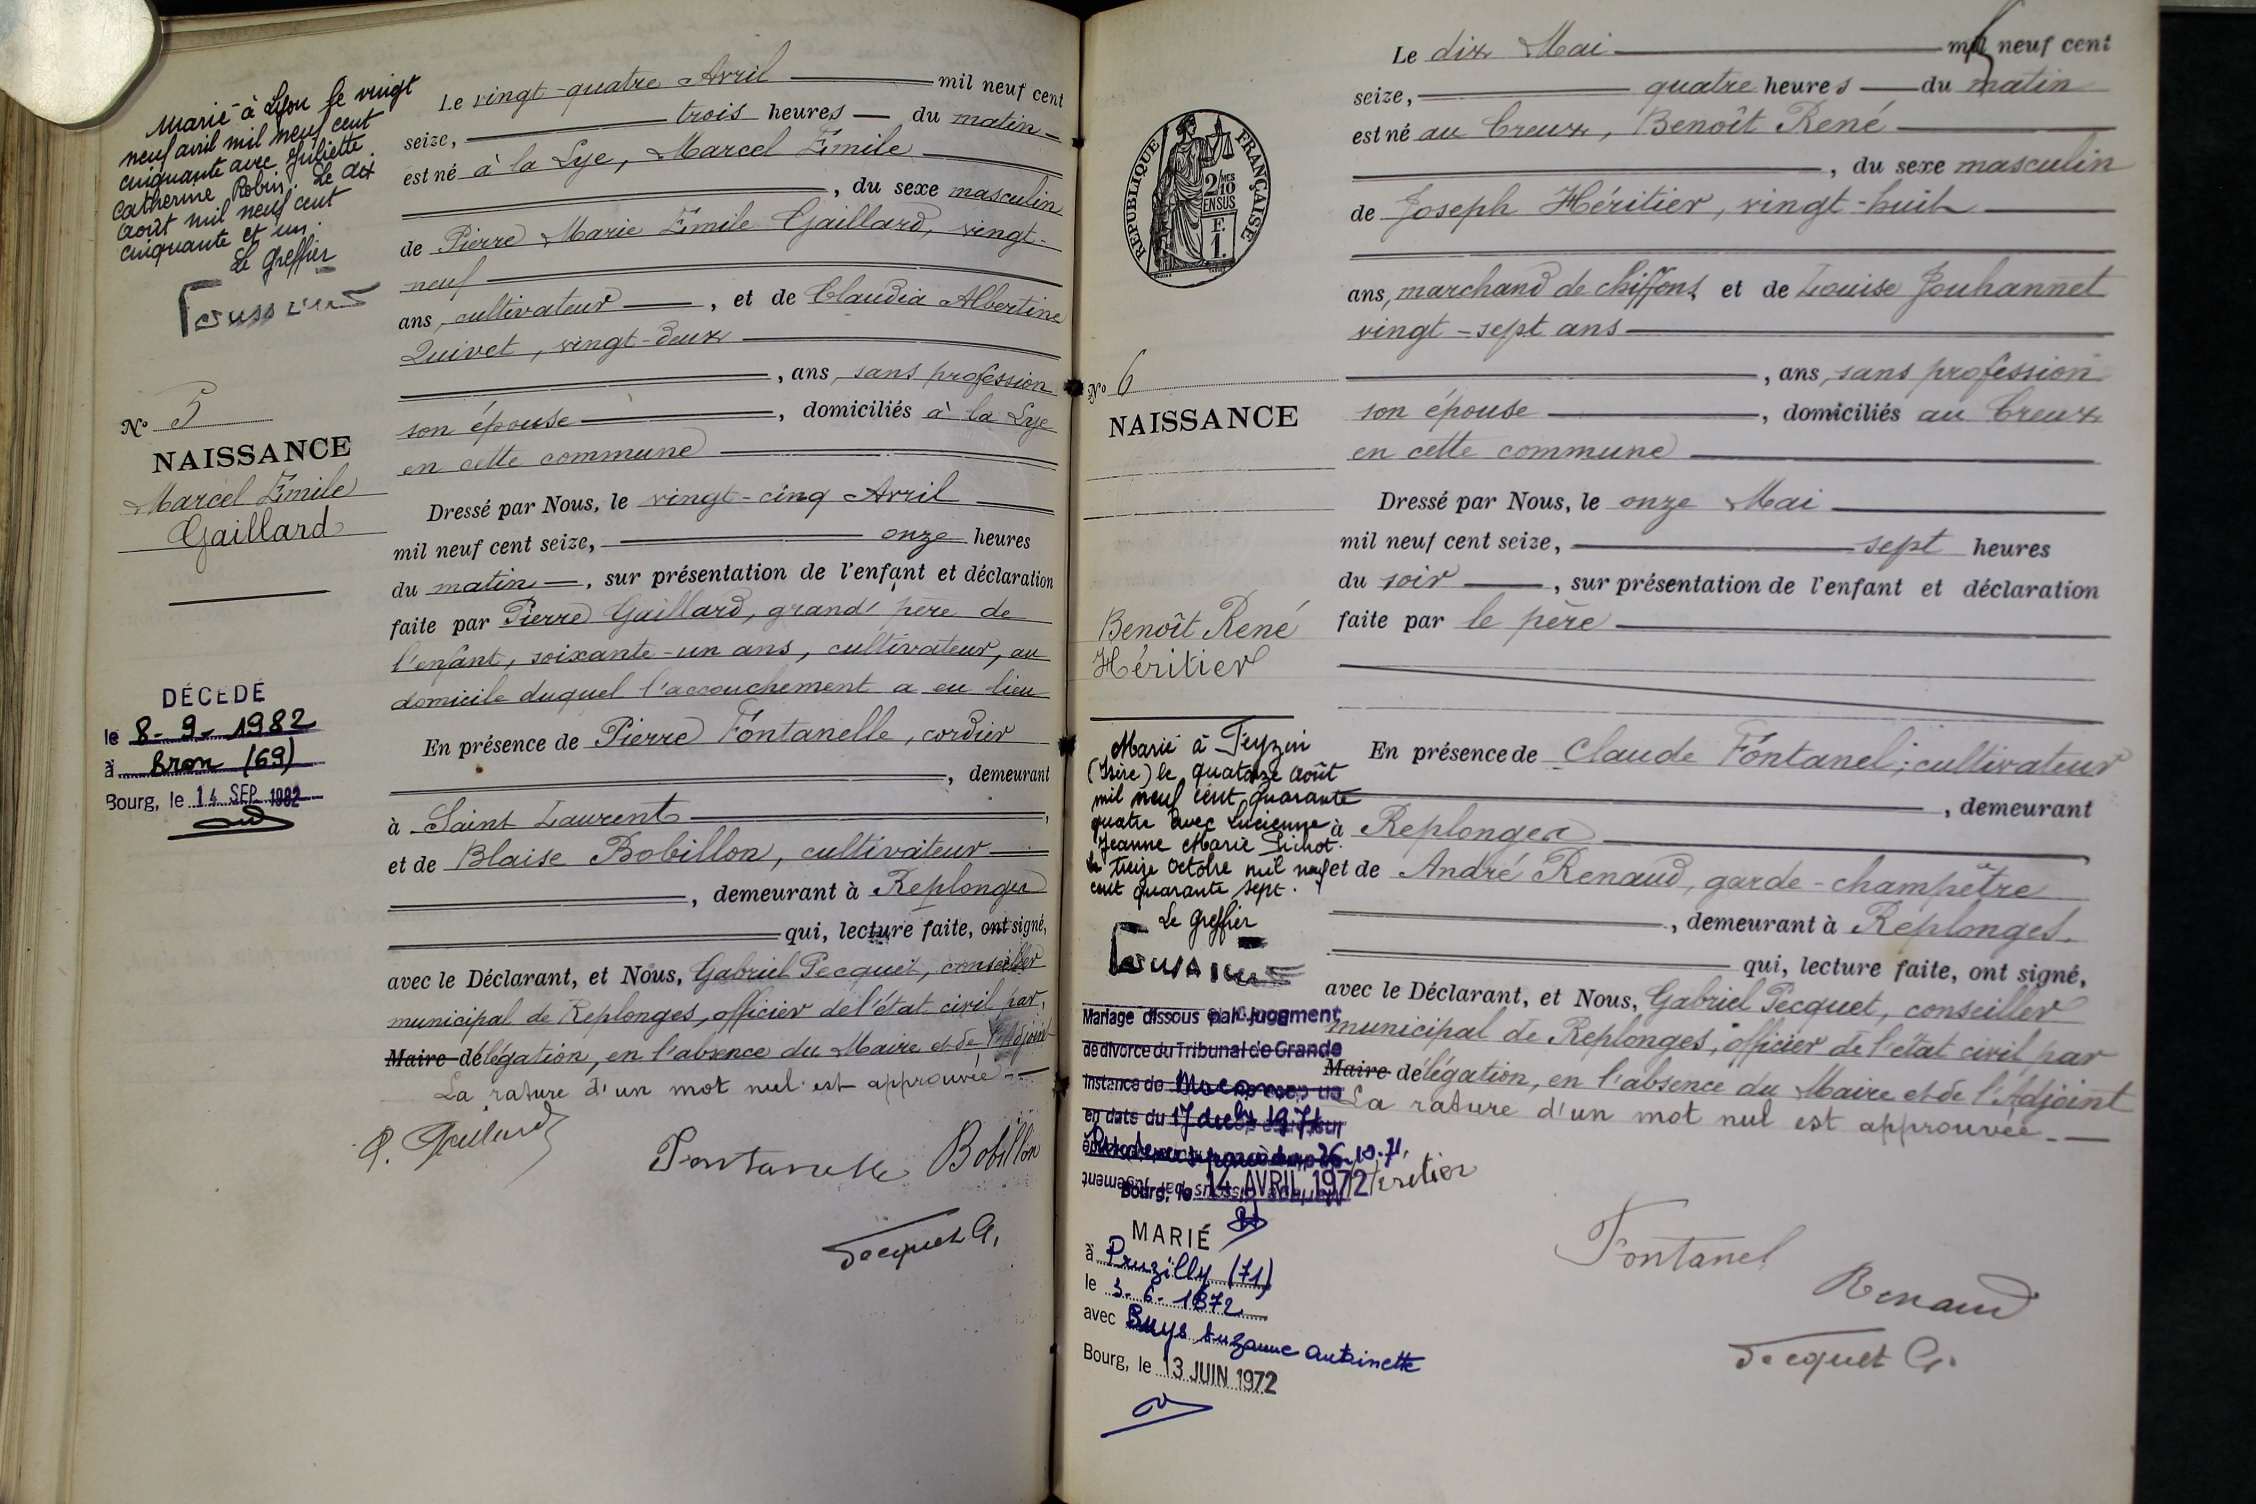 Marié à Lyon le vingt
neuf avril mil neuf cent
cinquante avec Juliette
Catherine Robin. Le dix
août mil neuf cent
cinquante et un.
Le Greffier
N° 5
NAISSANCE
Marcel Emile
Gaillard
DÉCÉDÉ
le 8-9-1982
à Bron (69)
Bourg, le 14 SEP 1982
Le vingt-quatre Avril mil neuf cent
seize, trois heures du matin
est né à la Lye, Marcel Emile
, du sexe masculin
de Pierre Marie Emile Gaillard, vingt-
neuf
ans, cultivateur, et de Claudia Albertine
Quivet, vingt-deux
, ans, sans profession
son épouse, domiciliés à la Lye
en cette commune
Dressé par Nous, le vingt-cinq Avril
mil neuf cent seize, onze heures
du matin, sur présentation de l'enfant et déclaration
faite par Pierre Gaillard, grand'père de
l'enfant, soixante-un ans, cultivateur, au
domicile duquel l'accouchement a eu lieu
En présence de Pierre Fontanelle, cordier
, demeurant
à Saint Laurent,
et de Blaise Bobillon, cultivateur
, demeurant à Replonges
qui, lecture faite, ont signé,
avec le Déclarant, et Nous, Gabriel Pecquet, conseiller
municipal de Replonges, officier de l'état civil par
Maire délégation, en l'absence du Maire et de l'Adjoint
La rature d'un mot nul est approuvée.
P. Gaillard
Fontanelle Bobillon
Pecquet G.
RÉPUBLIQUE FRANÇAISE
2/10
MES
EN SUS
F.
1.
N° 6
NAISSANCE
Benoît René
Héritier
Marié à Feyzin
(Isère) le quatorze août
mil neuf cent quarante
quatre avec Lucienne
Jeanne Marie Pichot.
Le treize octobre mil neuf
cent quarante sept.
Le Greffier
Mariage dissous par jugement
de divorce du Tribunal de Grande
Instance de Macon
en date du 17 1971
Bourg, le 14 AVRIL 1972
MARIÉ
à Pruzilly (71)
le 3-6-1972
avec Buys Suzanne Antoinette
Bourg, le 13 JUIN 1972
Le dix Mai mil neuf cent
seize, quatre heures du matin
est né au Creux, Benoît René
, du sexe masculin
de Joseph Héritier, vingt-huit
ans, marchand de chiffons et de Louise Jouhannet
vingt-sept ans
, ans, sans profession
son épouse, domiciliés au Creux
en cette commune
Dressé par Nous, le onze Mai
mil neuf cent seize, sept heures
du soir, sur présentation de l'enfant et déclaration
faite par le père
En présence de Claude Fontanel, cultivateur
, demeurant
à Replonges
et de André Renaud, garde-champêtre
, demeurant à Replonges.
qui, lecture faite, ont signé,
avec le Déclarant, et Nous, Gabriel Pecquet, conseiller
municipal de Replonges, officier de l'état civil par
Maire délégation, en l'absence du Maire et de l'Adjoint
La rature d'un mot nul est approuvée.
Héritier
Fontanel
Renaud
Pecquet G.